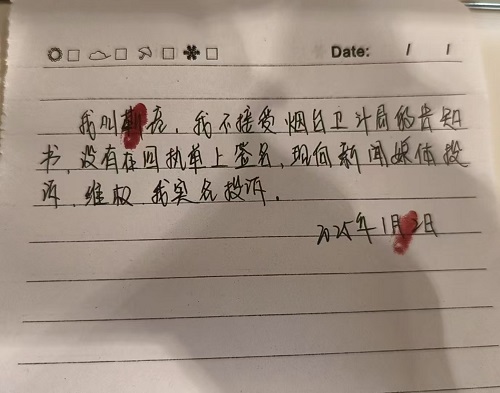 Date: / /
我叫靳亮，我不接受烟台卫计局的告知
书，没有在回执单上签名，现向新闻媒体投
诉，维权 我实名投诉.
2025年1月2日